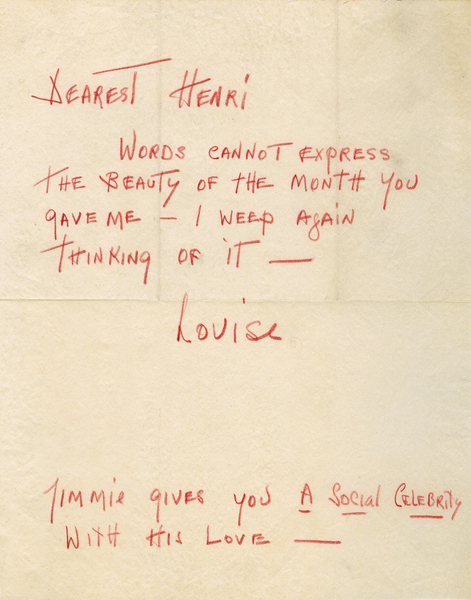 DEAREST HENRI
WORDS CANNOT EXPRESS
THE BEAUTY OF THE MONTH YOU
GAVE ME — I WEEP AGAIN
THINKING OF IT —
Louise
JIMMIE GIVES YOU A SOCIAL CELEBRITY
WITH HIS LOVE —